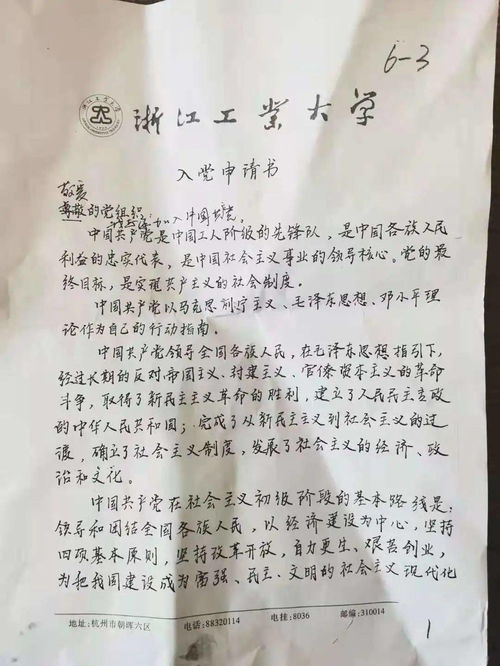 6-3
浙江工业大学
入党申请书
敬爱
尊敬的党组织:
我志愿加入中国共产党。
中国共产党是中国工人阶级的先锋队，是中国各族人民
利益的忠实代表，是中国社会主义事业的领导核心。党的最
终目标，是实现共产主义的社会制度。
中国共产党以马克思列宁主义、毛泽东思想、邓小平理
论作为自己的行动指南。
中国共产党领导全国各族人民，在毛泽东思想指引下，
经过长期的反对帝国主义、封建主义、官僚资本主义的革命
斗争，取得了新民主主义革命的胜利，建立了人民民主专政
的中华人民共和国；完成了从新民主主义到社会主义的过
渡，确立了社会主义制度，发展了社会主义的经济、政
治和文化。
中国共产党在社会主义初级阶段的基本路线是：
领导和团结全国各族人民，以经济建设为中心，坚持
四项基本原则，坚持改革开放，自力更生、艰苦创业，
为把我国建设成为富强、民主、文明的社会主义现代化
地址:杭州市朝晖六区 电话:88320114 电挂:8036 邮编:310014
1